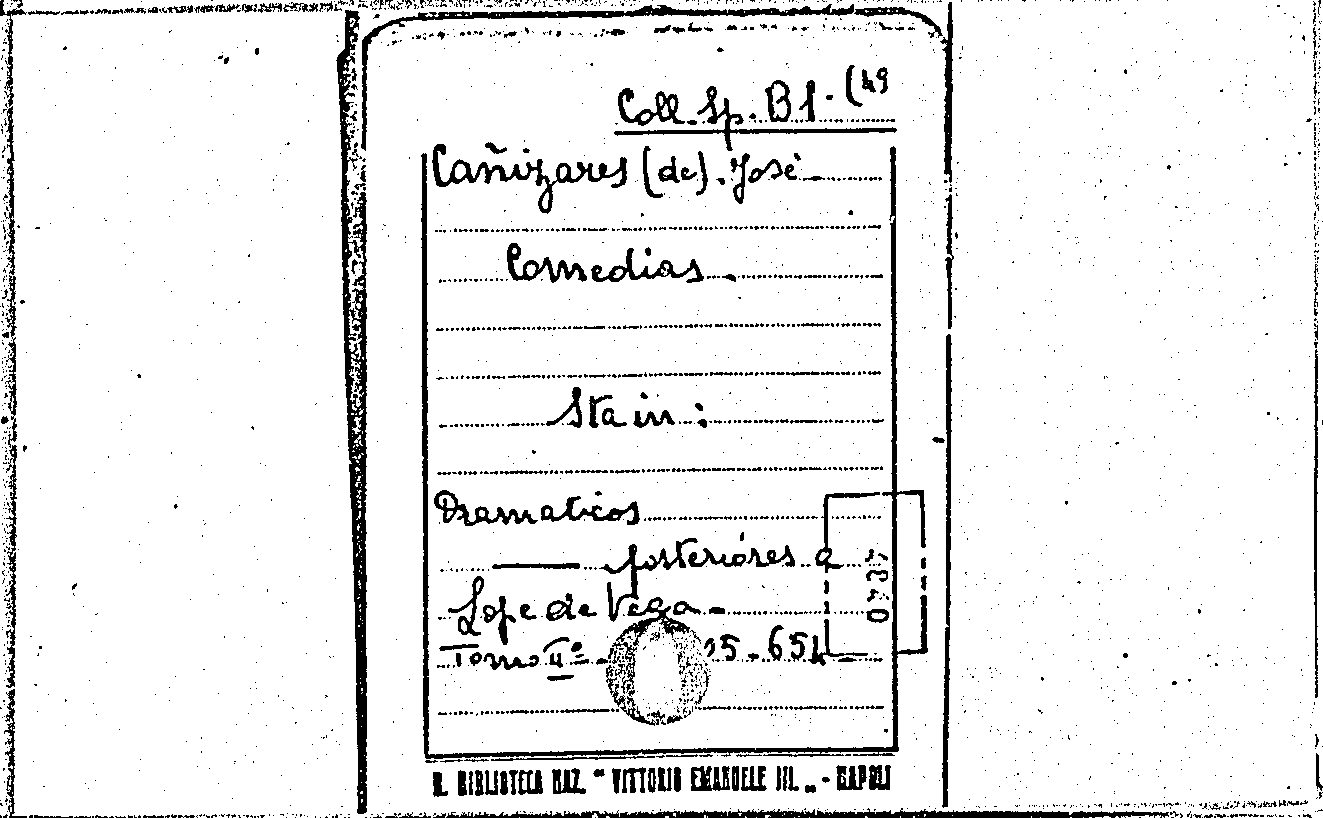 Coll. Sp. B 1. (49
Cañizares (de). José.
Comedias.
Sta in:
Dramaticos
posteriores a
Lope de Vega.
Tomo IIº 05-654
R. BIBLIOTECA NAZ. "VITTORIO EMANUELE III." - NAPOLI